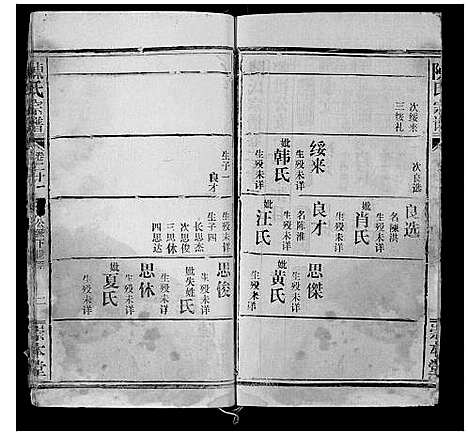 陳氏宗譜
次绥来
三绥礼
次良选
绥来
生殁未详
妣韩氏
生殁未详
生子一
良才
良选
名陳洪
生殁未详
妣肖氏
生殁未详
良才
名陈淮
生殁未详
妣汪氏
生殁未详
生子四
长思杰
次思俊
三思休
四思达
思傑
生殁未详
妣黄氏
生殁未详
思俊
生殁未详
妣失姓氏
思休
生殁未详
妣夏氏
生殁未详
崇本堂
氏宗譜
卷二十一
二
崇本堂